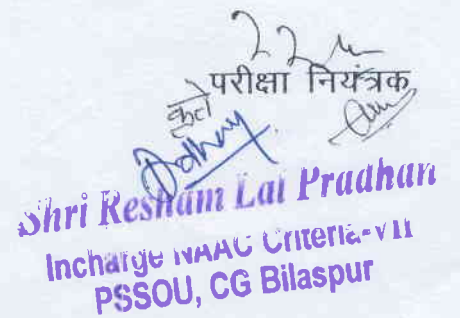 परीक्षा नियंत्रक
कृते
Shri Resham Lal Pradhan
Incharge NAAC Criteria-VII
PSSOU, CG Bilaspur